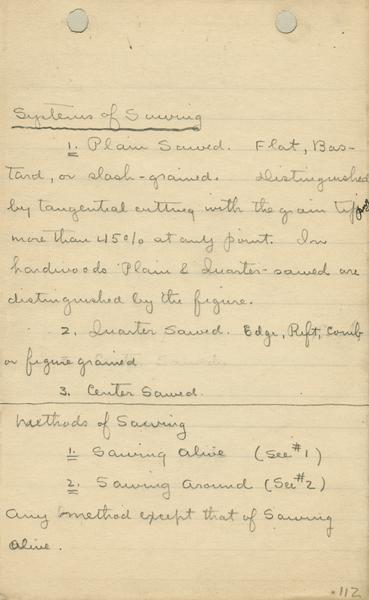 Systems of Sawing
1. Plain Sawed. Flat, Bas-
tard, or slash-grained. Distinguished
by tangential cutting with the grain
more than 45% at any point. In
hardwoods Plain & Quarter-sawed are
distinguished by the figure.
2. Quarter Sawed. Edge, Rift, Comb
or figure grained
3. Center Sawed.
Methods of Sawing
1. Sawing alive (See #1)
2. Sawing around (See #2)
Any method except that of Sawing
alive.
112